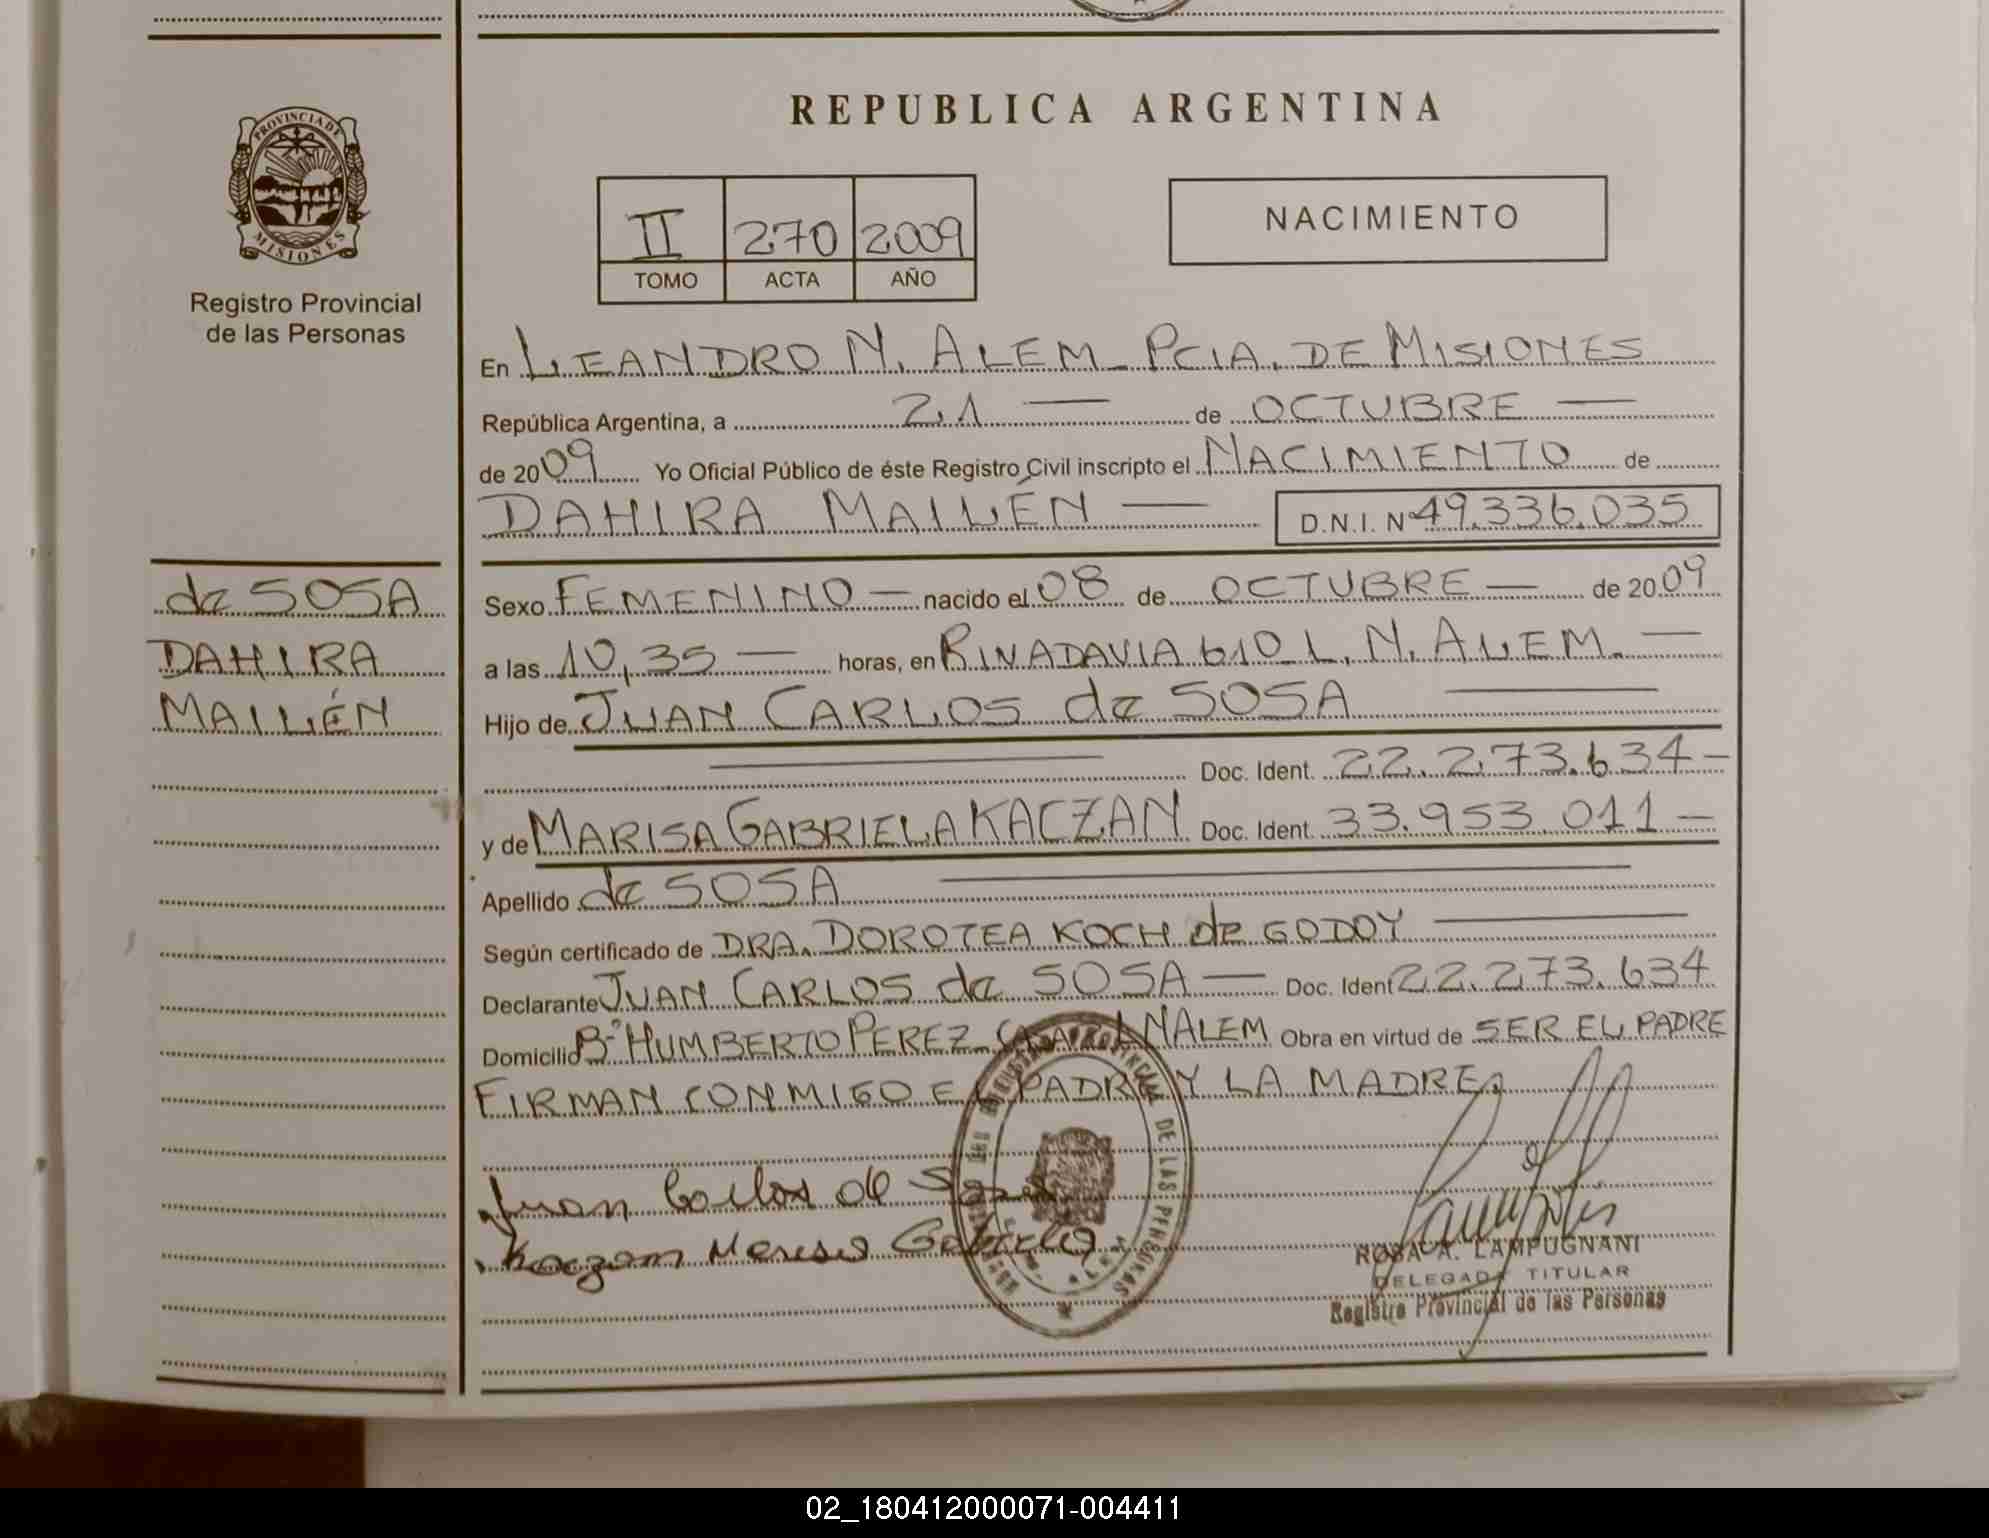 PROVINCIA DE
MISIONES
Registro Provincial
de las Personas
REPUBLICA ARGENTINA
II 270 2009
TOMO ACTA AÑO
NACIMIENTO
En LEANDRO N. ALEM - PCIA. DE MISIONES
República Argentina, a 21 — de OCTUBRE —
de 2009 Yo Oficial Público de éste Registro Civil inscripto el NACIMIENTO de
DAHIRA MAILÉN — D.N.I. Nº 49.336.035
de SOSA
DAHIRA
MAILÉN
Sexo FEMENINO — nacido el 08 de OCTUBRE — de 2009
a las 10,35 — horas, en RIVADAVIA 610 L. N. ALEM. —
Hijo de JUAN CARLOS de SOSA —
— Doc. Ident. 22.273.634 -
y de MARISA GABRIELA KACZAN Doc. Ident. 33.953.011 -
Apellido de SOSA —
Según certificado de DRA. DOROTEA KOCH de GODOY —
Declarante JUAN CARLOS de SOSA — Doc. Ident 22.273.634
Domicilio Bº HUMBERTO PEREZ LNALEM Obra en virtud de SER EL PADRE
FIRMAN CONMIGO EL PADRE Y LA MADRE.
Juan Carlos de Sosa
Kaczan Marisa Gabriela
DE LAS PERSONAS
ROSA A. LAMPUGNANI
DELEGADA TITULAR
Registro Provincial de las Personas
02_180412000071-004411